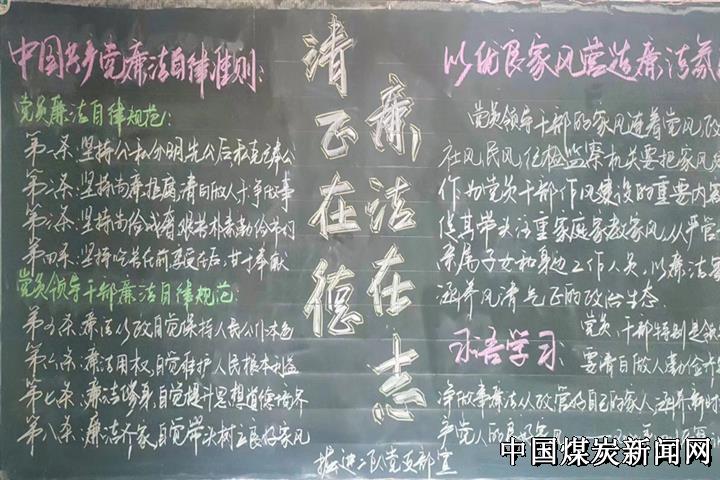 中国共产党廉洁自律准则:
党员廉洁自律规范:
第一条:坚持公私分明先公后私克己奉公
第二条:坚持尚廉拒腐,清白做人干净做事
第三条:坚持尚俭戒奢艰苦朴素勤俭节约
第四条:坚持吃苦在前享受在后,甘于奉献
党员领导干部廉洁自律规范:
第五条:廉洁从政自觉保持人民公仆本色
第六条:廉洁用权,自觉维护人民根本利益
第七条:廉洁修身,自觉提升思想道德境界
第八条:廉洁齐家,自觉带头树立良好家风
清正在德
廉洁在志
掘进二队党支部宣
以优良家风营造廉洁氛
党员领导干部的家风连着党风政
社风民风,纪检监察机关要把家风建
作为党员干部作风建设的重要内容
促其带头注重家庭家教家风,从严管
亲属子女和身边工作人员,以廉洁家
涵养风清气正的政治生态
党员干部特别是领
学习:
要清白做人勤俭齐
净做事廉洁从政管好自己的家人涵养新时
产党人的良好家风
中国煤炭新闻网